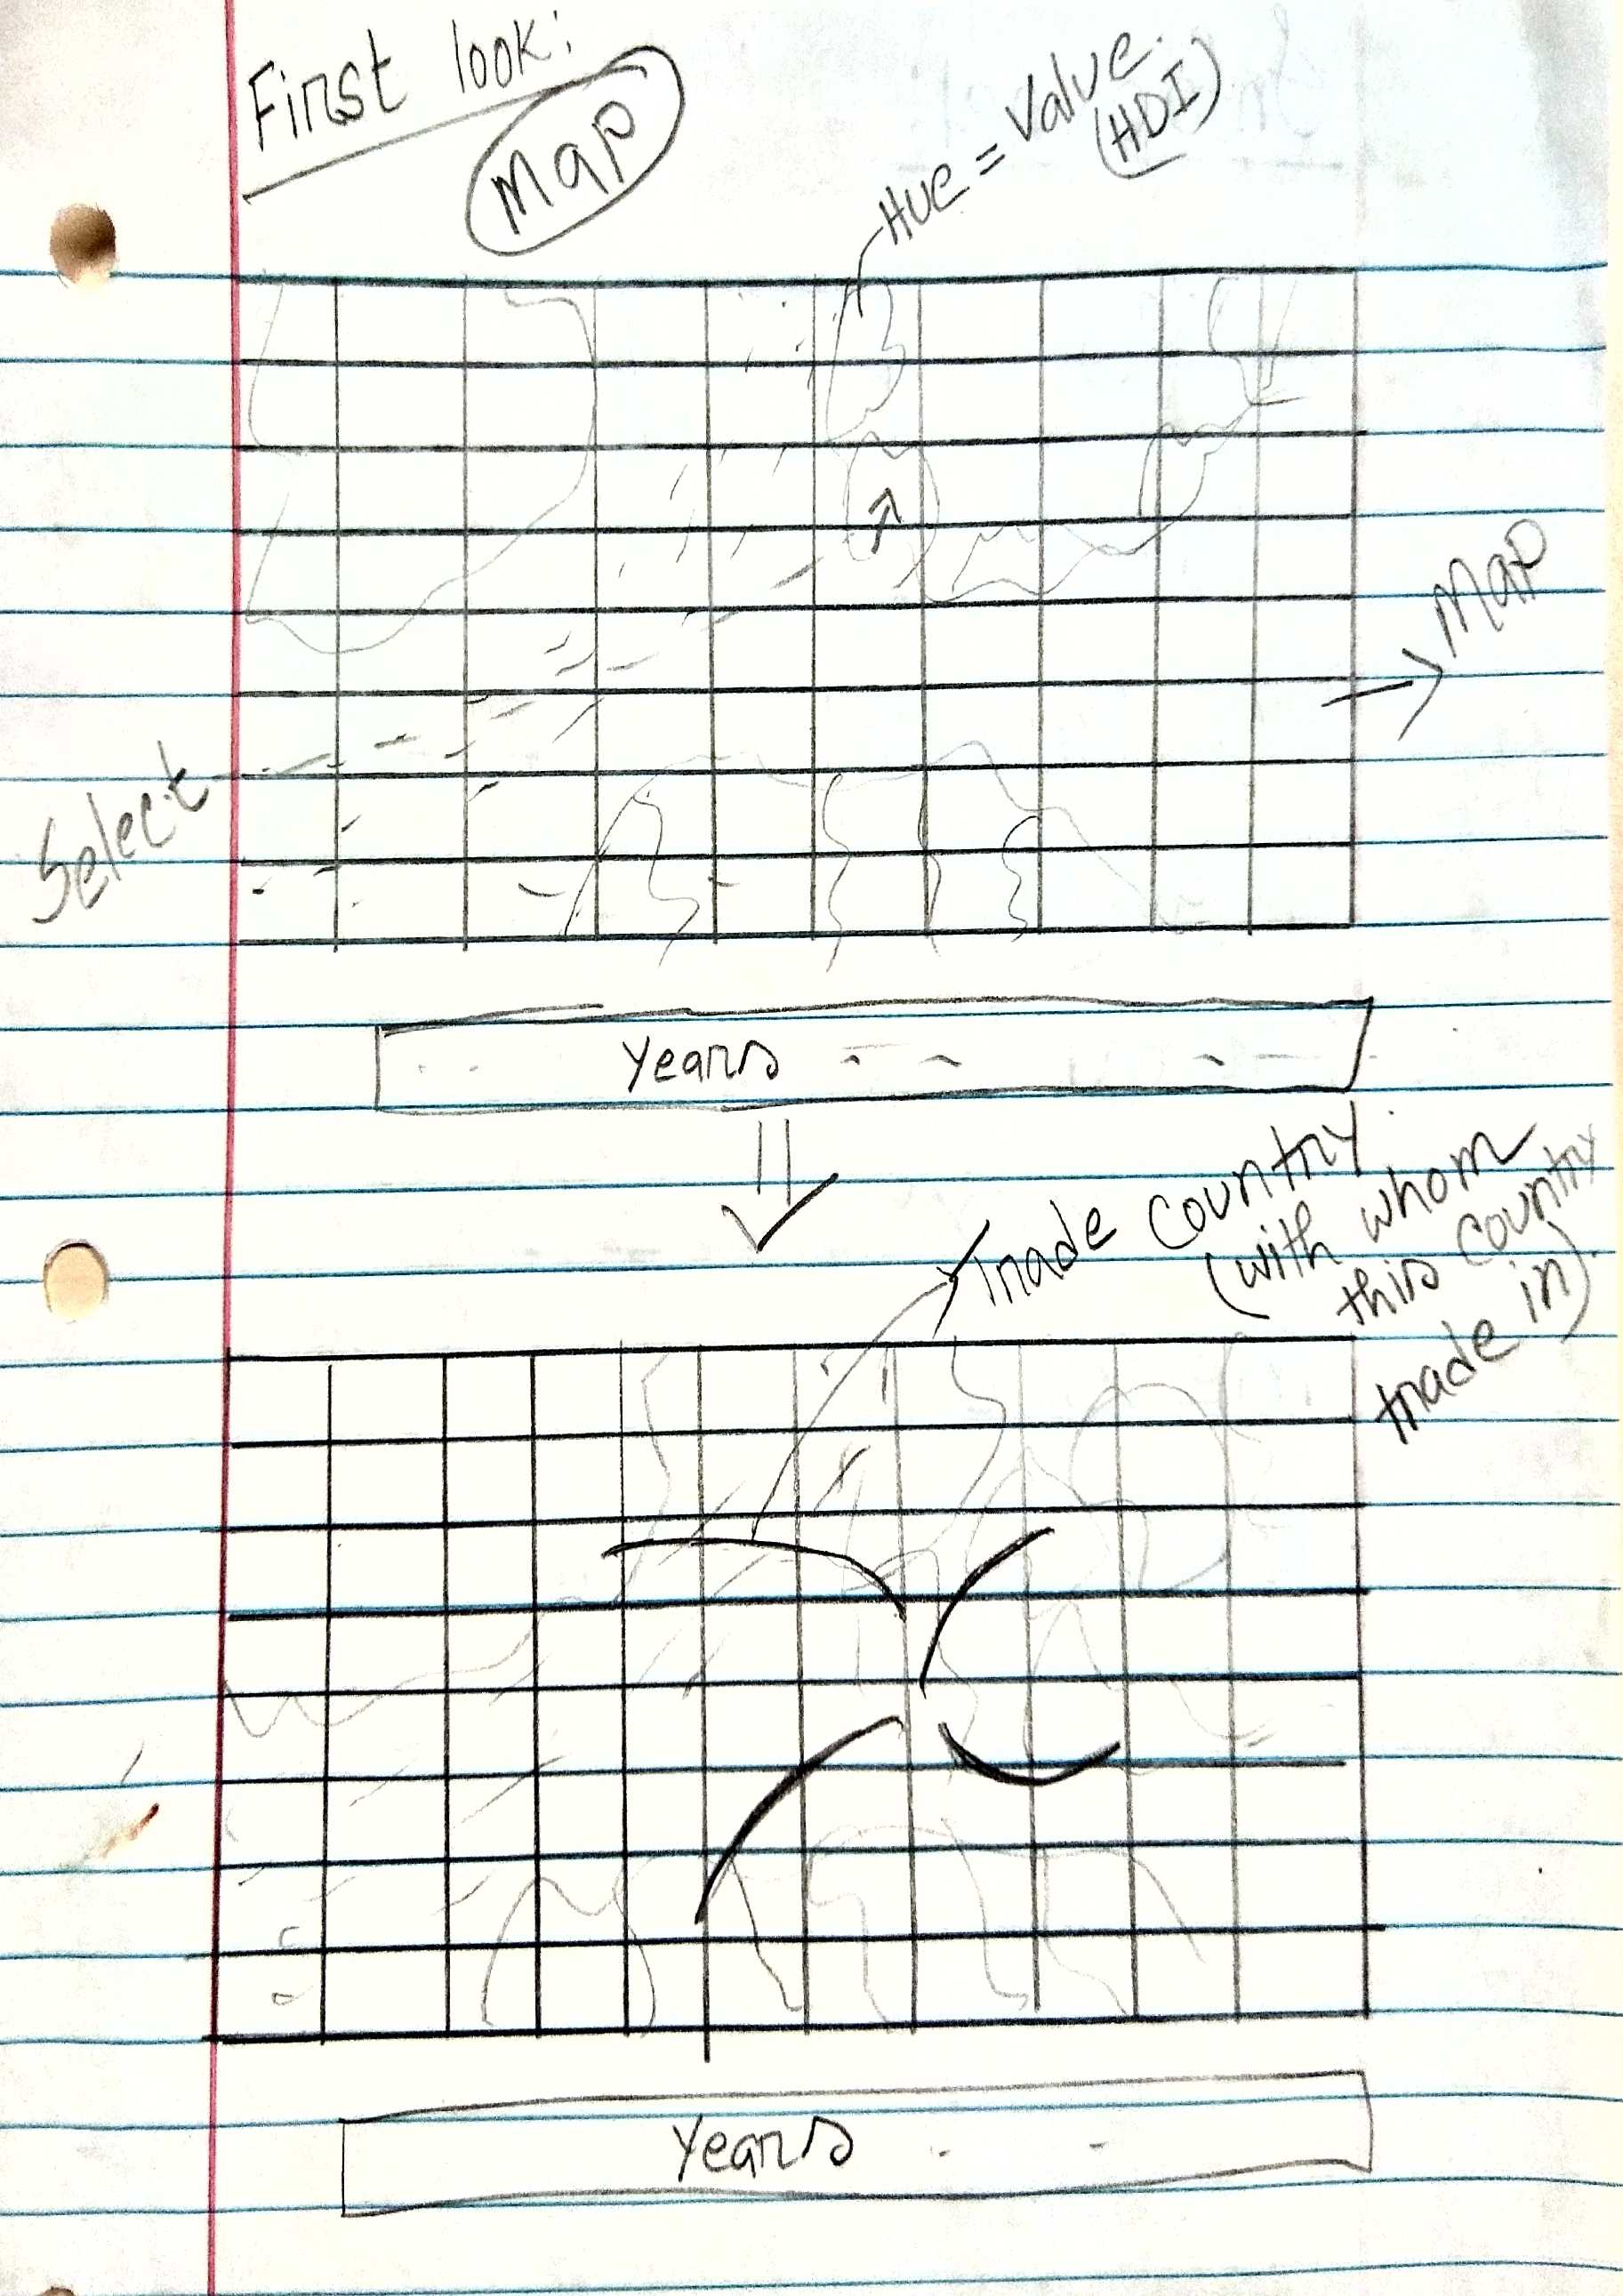 First look:
Map
Hue = Value.
(HDI)
Map
Select
Years
Trade Country
(with whom
this country
trade in).
Years